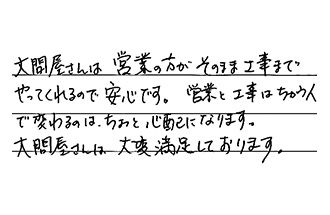 大問屋さんは 営業の方が そのまま工事まで
やってくれるので 安心です。 営業と工事はちがう人
で変わるのは、ちょっと心配になります。
大問屋さんは 大変満足しております。